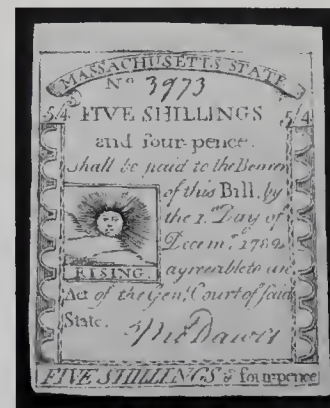 MASSACHUSETTS STATE
No 3973
5/4 FIVE SHILLINGS 5/4
and four-pence.
Shall be paid to the Bearer
of this Bill, by
the 1.st Day of
Decemr. 1782
RISING.
agreeable to an
Act of the Genl. Court of said
State.
Thos Dawes
FIVE SHILLINGS & four-pence